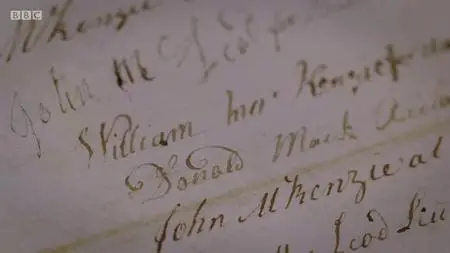 BBC
M'kenzie
John McLeod for
William mcr Kenzie for
Donald Mack
John M'kenzie at
Leod Lieu